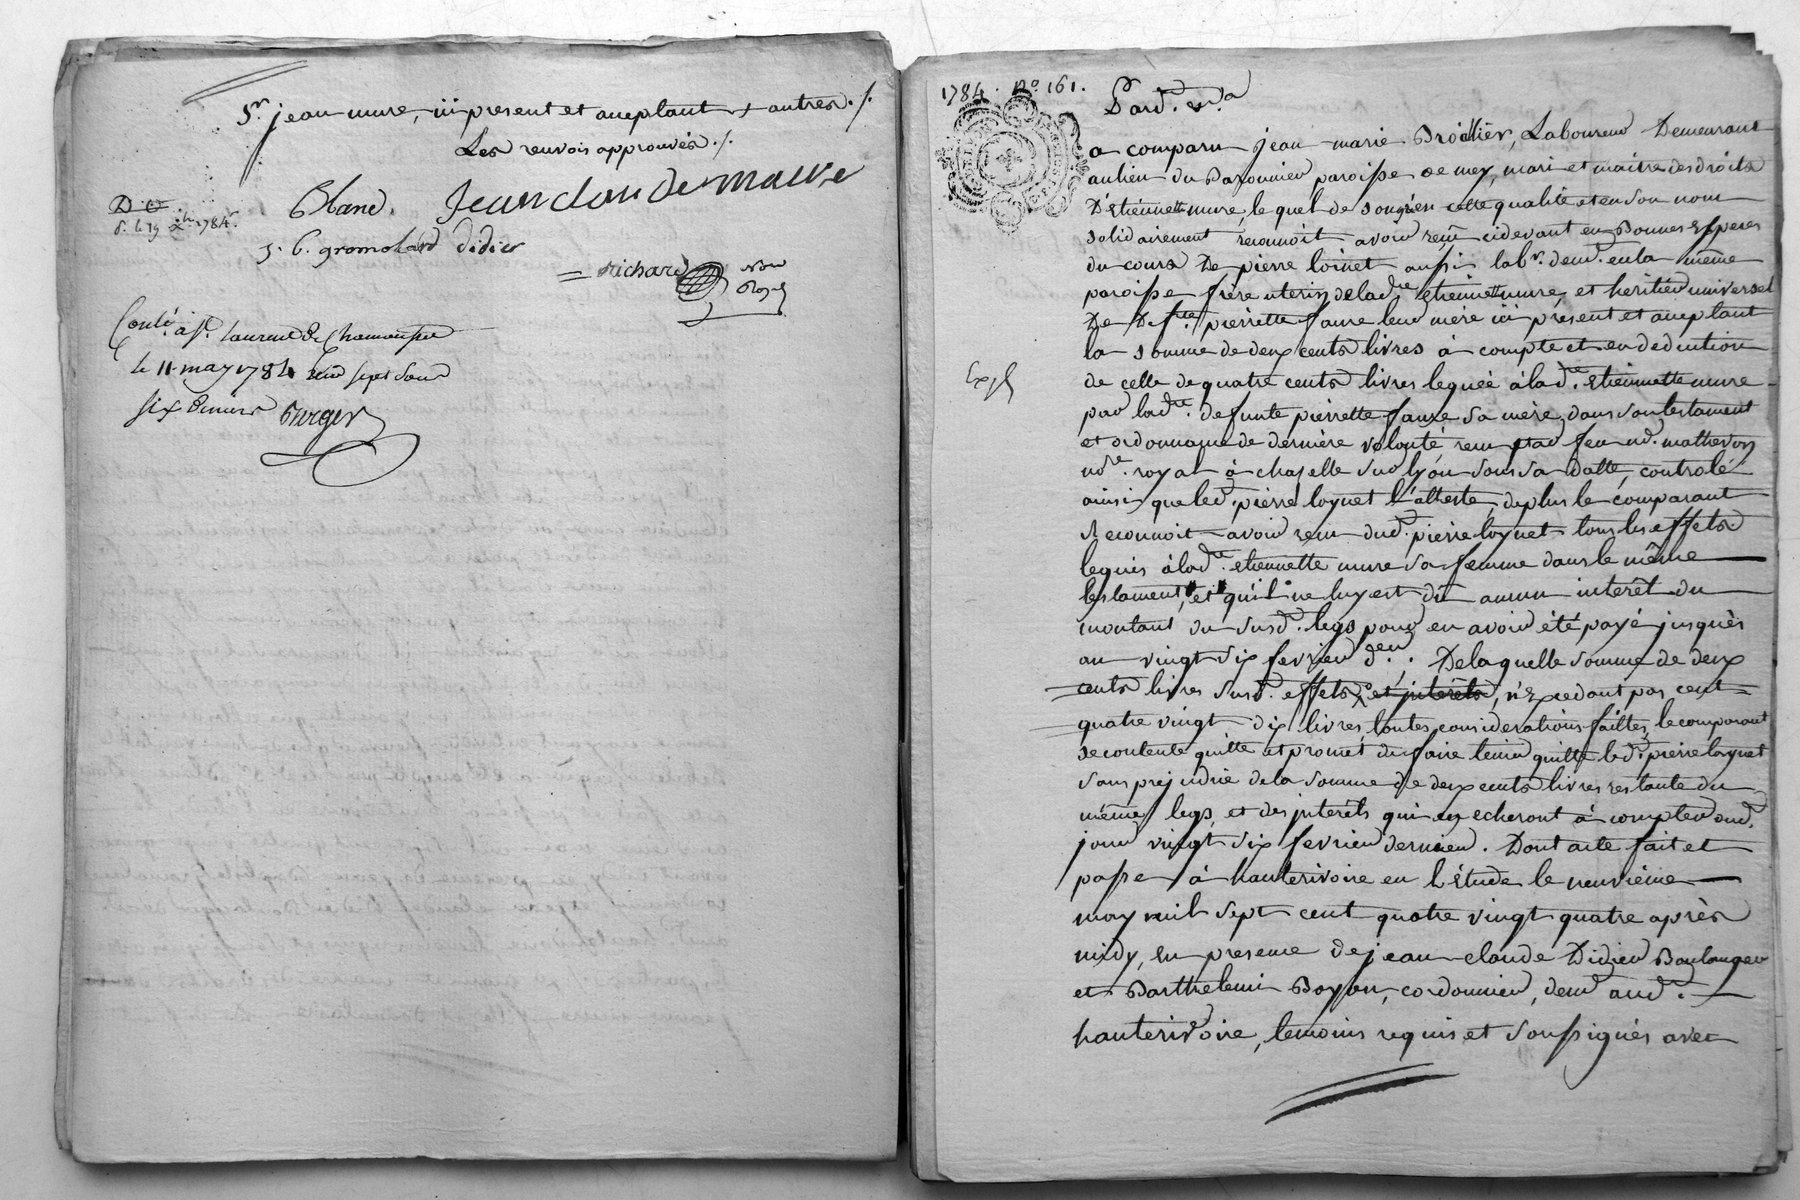 Sr. jean mure, ici present et aceptant & autres ./.
Les renvois approuvés ./.
Bland. Jean claude maive
D. C.
d. le 19 xbre 1784.
j. b. gromolard didier
Richard nore Royal
Conlé. à St. Laurent De Chamousset
le 11. may 1784 Reçu sept sous
six deniers Burger
1784. No. 161.
Pard. nre.
a comparu jean marie Broallier, Laboureur Demeurant
au lieu du Baronnier paroisse de mey, mari et maitre des droits
D'Etiennette mure, le quel de son gré en cette qualité et en son nom
solidairement reconnoit avoir reçu cidevant en Bonnes Especes
du cours De pierre loinet aussi labr. demt. en la même
paroisse frère uterin de ladte. etiennette mure, et heritier universel
De Defte. pierrette faure leur mère ici present et aceptant
la somme de deux cents livres à compte et en deduction
Expé
de celle de quatre cents livres leguée à lade. etiennette mure
par ladte. defunte pierrette faure sa mère, dans son testament
et ordonnance de dernière volonté, reçu par feu me. mathevon
nore. royal à chazelle sur lyon sous sa datte, controlé
ainsi que led. pierre loynet l'atteste, de plus le comparant
Reconnoit avoir reçu dud. pierre loynet tous les effets
legués à lade. etiennette mure sa femme dans le même
testament, et qu'il ne luy est dû aucun interêt du
montant du susd. legs pour en avoir été payé jusques
au vingt six fevrier der. De laquelle somme de deux
cents livres susd. effets, et interêts, n'excedant pas cent
quatre vingt dix livres, toutes considerations faittes, le comparant
se contente quitte et promet de faire tenir quitte led. pierre loynet
sans prejudice de la somme de deux cents livres restante du
même legs, et des interêts qui en echeront à compter dud.
jour vingt six fevrier dernier. Dont acte fait et
passé à hauterivoire en l'étude le neuvième
may mil sept cent quatre vingt quatre après
midy, en presence de jean claude Didier Boulanger
et Barthelemi Boyon, cordonnier, demt. aud.
hauterivoire, temoins requis et soussignés avec